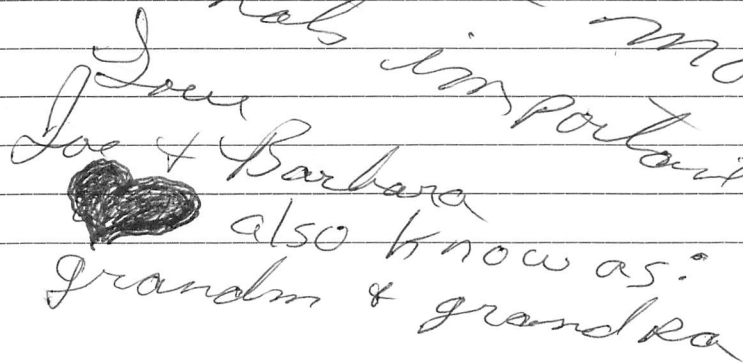 important
Love
Joe & Barbara
also know as:
grandm & grandpa